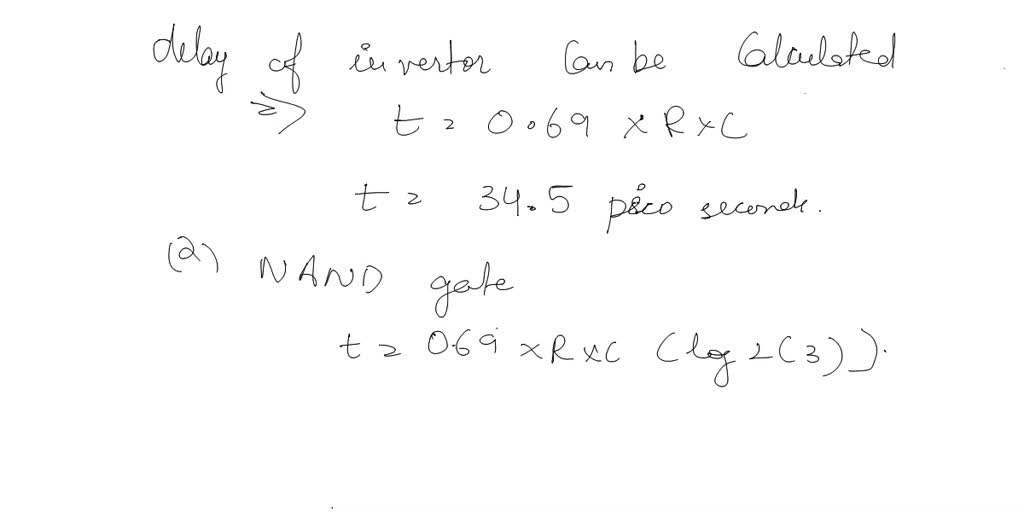 delay of invertor Can be Calculated
=> t = 0.69 x R x C
t = 34.5 pico seconds.
(2) NAND gate
t = 0.69 x R x C (log 2(3)).